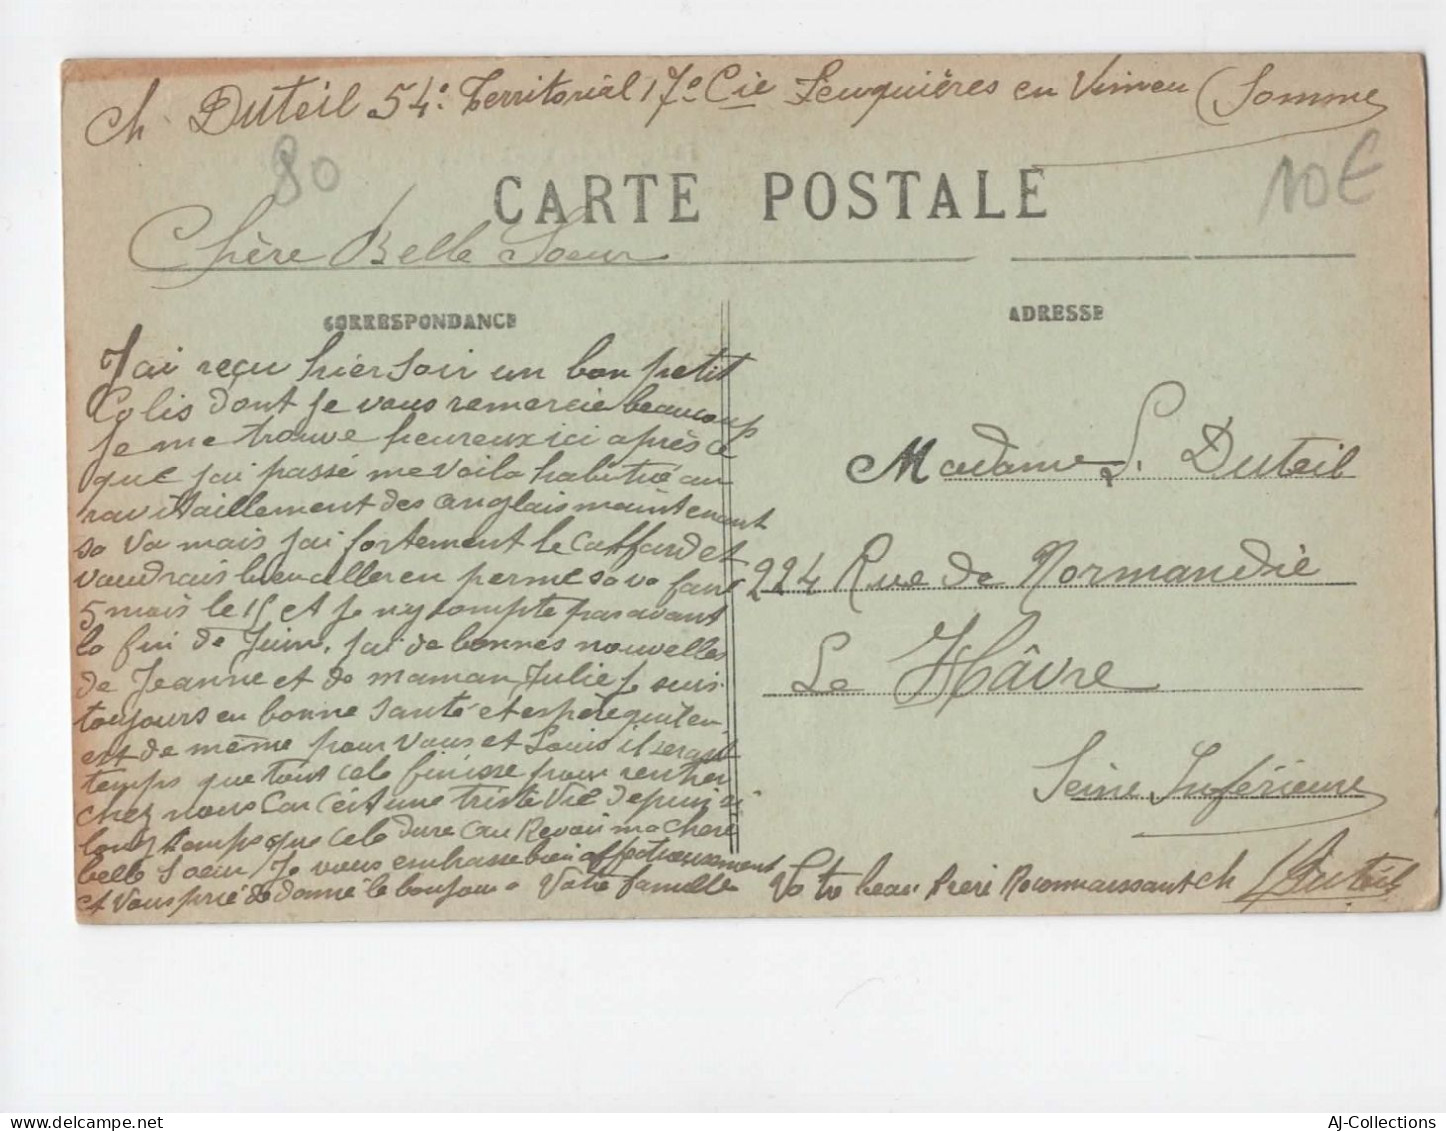 Ch. Duteil 54e Territorial 17e Cie Feuquières en Vimeu (Somme
80
10€
CARTE POSTALE
Chère Belle Soeur
CORRESPONDANCE
ADRESSE
J'ai reçu hier soir un bon petit
Colis dont je vous remercie beaucoup
je me trouve heureux ici après ce
que j'ai passé me voila habitué au
ravitaillement des anglais maintenant
sa va mais j'ai fortement le caffard et
vaudrais bien aller en perme sa va faire
5 mois le 15 et je n'y compte pas avant
la fin de Juin. j'ai de bonnes nouvelles
de Jeanne et de maman Julie je suis
toujours en bonne santé et espère qu'il en
est de même pour vous et Louis il serait
temps que tout cela finisse pour rentrer
chez nous Car c'est une triste vie depuis si
longtemps que cela dure Au Revoir ma chère
belle Soeur Je vous embrasse bien affectueusement
et vous prie de donne le bonjour a votre famille
Votre beau frère Reconnaissant Ch Duteil
Madame L. Duteil
224 Rue de Normandie
Le Hâvre
Seine Inférieure
AJ-Collections